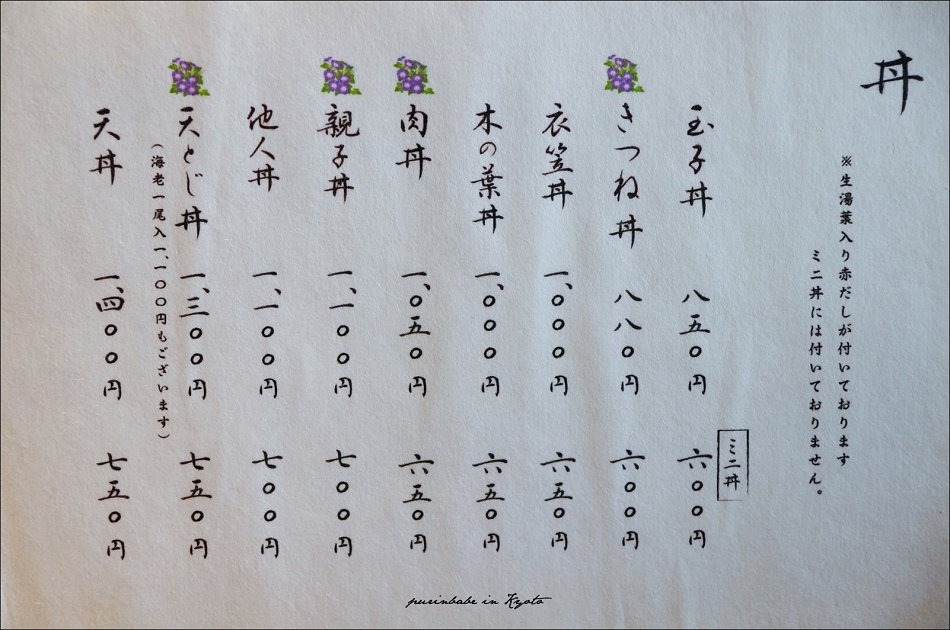 丼
※生湯葉入り赤だしが付いております
ミニ丼には付いておりません。
ミニ丼
玉子丼 八五〇円 六〇〇円
きつね丼 八八〇円 六〇〇円
衣笠丼 一、〇〇〇円 六五〇円
木の葉丼 一、〇〇〇円 六五〇円
肉丼 一、〇五〇円 六五〇円
親子丼 一、一〇〇円 七〇〇円
他人丼 一、一〇〇円 七〇〇円
天とじ丼 一、三〇〇円 七五〇円
(海老一尾入一、一〇〇円もございます)
天丼 一、四〇〇円 七五〇円
purinbabe in Kyoto